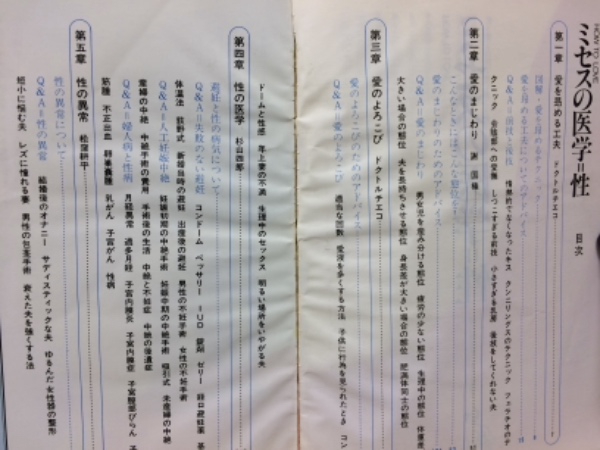 HOW TO LOVE
ミセスの医学=性
目次
第一章 愛を高める工夫 ドクトルチエコ
図解・愛を高めるテクニック
愛を高める工夫についてのアドバイス
Q&A=前技と後技 情熱的でなくなったキス クンニリングスのテクニック フェラチオのテ
クニック 会陰部への愛撫 しつこすぎる前技 小さすぎる乳房 後技をしてくれない夫
第二章 愛のまじわり 謝国権
こんなときにはこんな体位を
愛のまじわりのためのアドバイス
Q&A=愛のまじわり 男女児を産み分ける部位 疲労の少ない部位 生理中の部位 体重差
大きい場合の部位 夫を長持ちさせる部位 身長差が大きい場合の部位 肥満体同士の部位
第三章 愛のよろこび ドクトルチエコ
愛のよろこびのためのアドバイス
Q&A=愛のよろこび 適当な回数 愛液を多くする方法 子供に行為を見られたとき コン
ドームと性感 年上妻の不満 生理中のセックス 明るい場所をいやがる夫
第四章 性の医学 杉山四郎
避妊と性の病気について
Q&A=失敗のない避妊 コンドーム ペッサリー IUD 錠剤 ゼリー 経口避妊薬 基
体温法 荻野式 新婚当時の避妊 出産後の避妊 男性の不妊手術 女性の不妊手術
Q&A=人工妊娠中絶 妊娠初期の中絶手術 妊娠中期の中絶手術 吸引式 未産婦の中絶
産婦の中絶 中絶手術の費用 手術後の生活 中絶と不妊症 中絶の後遺症
Q&A=婦人病と性病 月経異常 過多月経 子宮内膜炎 子宮内膜症 子宮膣部びらん 子
筋腫 不正出血 卵巣嚢腫 乳がん 子宮がん 性病
第五章 性の異常 松窪耕平
性の異常について
Q&A=性の異常 結婚後のオナニー サディスティックな夫 ゆるんだ女性器の整形
短小に悩む夫 レズに憧れる妻 男性の包茎手術 衰えた夫を強くする法